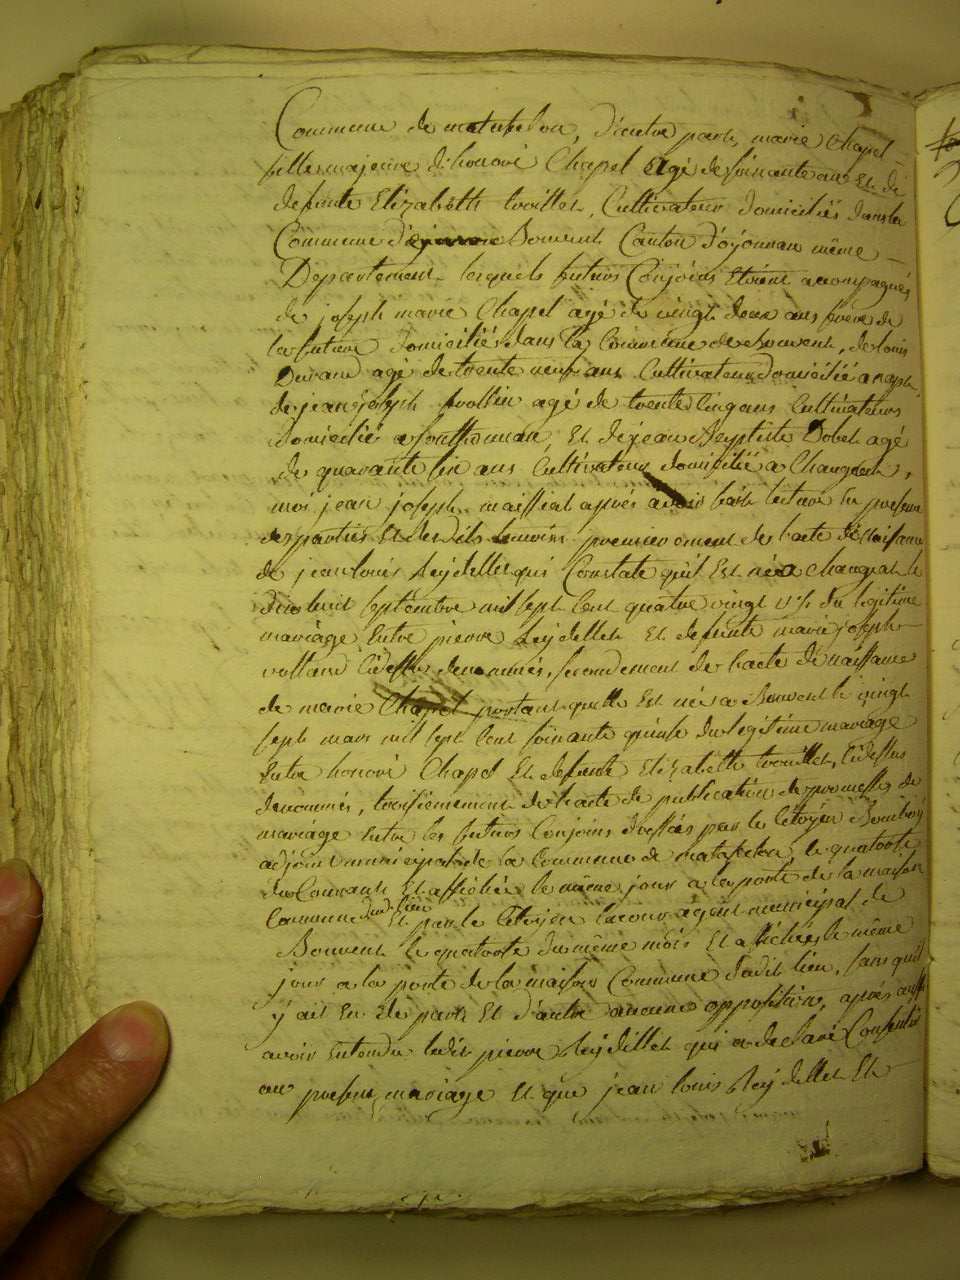 Commune de matafelon, d'autre part, marie chapel
fille majeure d'honoré Chapel agé de soixante ans et de
defunte Elizabeth trouillet, Cultivateur domiciliés dans la
Commune d' Bouvent Canton d'oyonnax même
Departement lesquels futurs Conjoins etoient accompagnés
de joseph marie Chapel agé de vingt deux ans frère de
la future domiciliés dans la Commune de Bouvent, de louis
Durand agé de trente neuf ans Cultivateur domicilié a
de jean joseph agé de trente Cinq ans Cultivateurs
domicilié a et de jean Baptiste Dobet agé
de quarante six ans Cultivateur domicilié a Changeat,
moi jean joseph maissiat après avoir fait lecture en presence
des parties et desdits temoins premierement de l'acte de naissance
de jean louis Reydellet qui Constate qu'il est né a Changeat le
dix huit septembre mil sept Cent quatre vingt du legitime
mariage Entre pierre Reydellet et defunte marie joseph
voltaire Cidessus denommés, secondement de l'acte de naissance
de marie Chapel portant quelle est née a Bouvent le vingt
sept mars mil sept Cent soixante quinse du legitime mariage
Entre honoré Chapel et defunte Elizabeth trouillet, Cidessus
denommés, troisiemement de l'acte de publication de promesses de
mariage entre les futurs Conjoins dressées par le Citoyen
adjoint municipal de la Commune de matafelon, le quatorse
du Courant et affichée le même jour a la porte de la maison
Commune dudit lieu et par le Citoyen agent municipal de
Bouvent le quatorse du même mois et affichées le même
jour a la porte de la maison Commune dudit lieu, sans qu'il
y ait eu de part et d'autre aucune opposition, après aussi
avoir entendu ledit pierre Reydellet qui a declaré Consentir
au present mariage et que jean louis Reydellet et